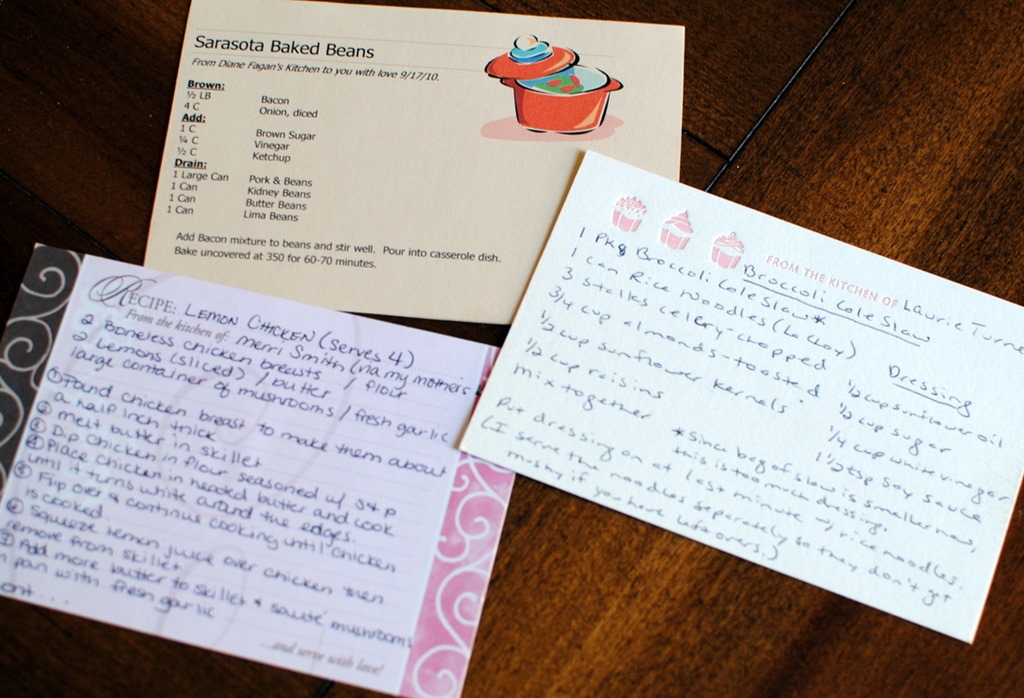 Sarasota Baked Beans
From Diane Fagan's Kitchen to you with love 9/17/10.
Brown:
½ LB Bacon
4 C Onion, diced
Add:
1 C Brown Sugar
¼ C Vinegar
½ C Ketchup
Drain:
1 Large Can Pork & Beans
1 Can Kidney Beans
1 Can Butter Beans
1 Can Lima Beans
Add Bacon mixture to beans and stir well. Pour into casserole dish.
Bake uncovered at 350 for 60-70 minutes.
RECIPE: LEMON CHICKEN (serves 4)
From the kitchen of: Merri Smith (via my mother's
2 Boneless chicken breasts / flour
2 Lemons (sliced) / butter
large container of mushrooms / fresh garlic
① Pound chicken breast to make them about
a half inch thick
② melt butter in skillet
③ Dip chicken in flour seasoned w/ s&p
④ Place chicken in heated butter and cook
until it turns white around the edges.
⑤ Flip over & continue cooking until chicken
is cooked.
⑥ Squeeze lemon juice over chicken then
remove from skillet
⑦ Add more butter to skillet & sauté mushrooms
pan with fresh garlic
ont...
...and serve with love!
FROM THE KITCHEN OF Laurie Turne
Broccoli Cole Slaw
1 pkg Broccoli Cole Slaw*
1 can Rice Noodles (La Choy)
3 stalks celery-chopped
3/4 cup almonds-toasted
1/2 cup sunflower kernels
1/2 cup raisins
mix together
Dressing
1/2 cup sunflower oil
1/2 cup sugar
1/4 cup white vinegar
1 1/2 tsp soy sauce
*Since bag of slaw is smaller now,
this is too much dressing.
Put dressing on at last minute w/ rice noodles.
(I serve the noodles separately so they don't get
mushy if you have leftovers.)